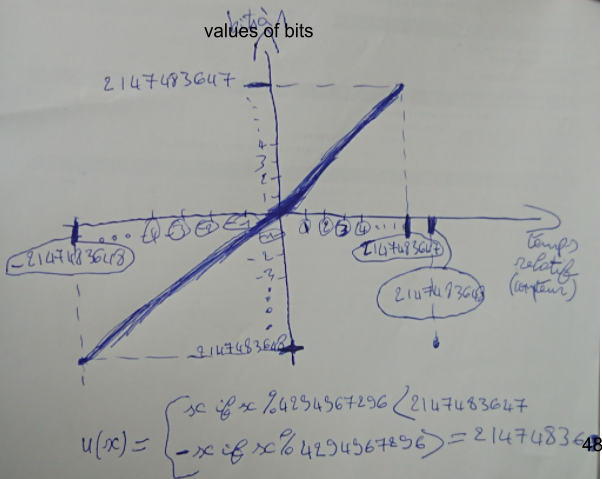 bits à 1
values of bits
2147483647
4
3
2
1
-4 -3 -2 -1 1 2 3 4 ...
-1
-2
-3
-2147483648
2147483647
2147483648
temps
relatif
(compteur)
-2147483648
u(x) = { x if x % 4294967296 < 2147483647
-x if x % 4294967296 >= 2147483648